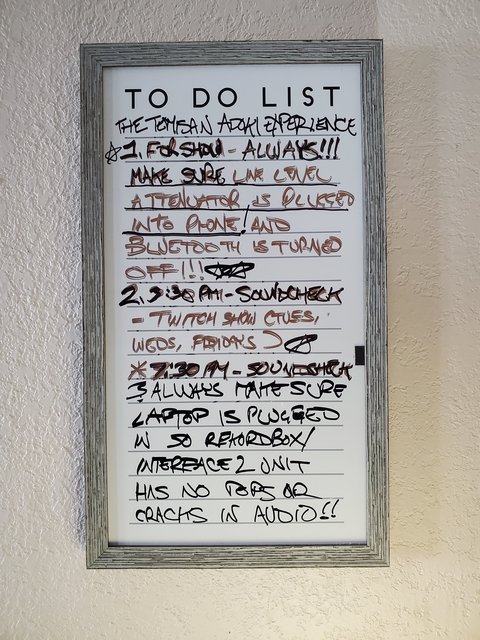 TO DO LIST
THE TOMSAN AOKI EXPERIENCE
☆1. FOR SHOW - ALWAYS!!!
MAKE SURE LINE LEVEL
ATTENUATOR IS PLUGGED
INTO PHONE! AND
BLUETOOTH IS TURNED
OFF!!!
2. 3:30 PM - SOUNDCHECK
- TWITCH SHOW (TUES,
WEDS, FRIDAYS)
* 7:30 PM - SOUNDCHECK
3 ALWAYS MAKE SURE
LAPTOP IS PLUGGED
IN SO REKORDBOX/
INTERFACE 2 UNIT
HAS NO POPS OR
CRACKS IN AUDIO!!